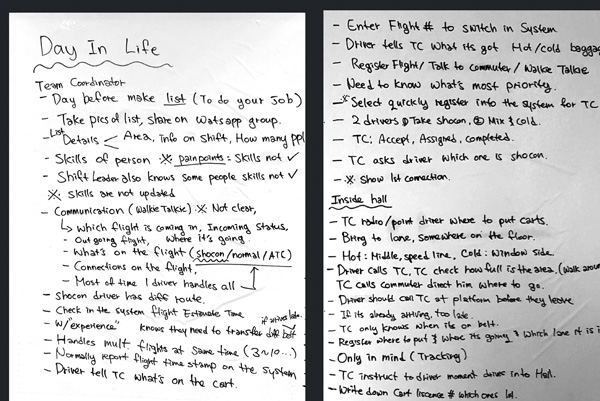 Day In Life
Team Coordinator
- Day before make list (To do your Job)
- Take pics of list, share on Watsapp group.
- List Details < Area, Info on Shift, How many ppl
- Skills of person ※ painpoints: Skills not ✓
- Shift Leader also knows some people skills not ✓
※: skills are not updated
- Communication (Walkie Talkie) ※: Not clear,
↳ which flight is coming in, Incoming Status.
- Out going flight, Where it's going.
- What's on the flight (shocon/normal/ATC)
- Connections on the flight,
- Most of time 1 driver handles all
- Shocon driver has diff route.
- Check in the system flight Estimate Time
if arrives late.
- W/"experience" knows they need to transfer diff belt
- Handles mult flights at same time (3~10...)
- Normally report flight time stamp on the system
- Driver tell TC what's on the cart.
- Enter Flight # to switch in System
- Driver tells TC what its got Hot/cold baggag
- Register Flight/ Talk to commuter / Walkie Talkie
- Need to know what's most priority.
- ※ Select quickly register into the system for TC
- 2 drivers ① Take shocon, ② Mix & cold.
- TC: Accept, Assigned, completed.
- TC asks driver which one is shocon.
- ※ Show 1st connection.
Inside hall
- TC radio/point driver where to put carts.
- Bring to lane, somewhere on the floor.
- Hot: Middle, speed line, Cold: Window side.
- Driver calls TC, TC check how full is the area, (Walk around
TC calls commuter direct him where to go.
- Driver should call TC at platform before they leave
- If its already arriving, too late.
- TC only knows when its on belt.
- Register where to put & where its going & which lane it is i
- Only in mind (Tracking)
- TC instruct to driver moment driver into Hall.
- Write down Cart # which ones